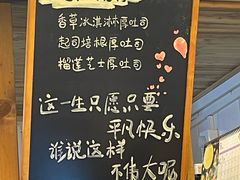 香草冰淇淋厚吐司
起司培根厚吐司
榴莲芝士厚吐司
这一生只愿只要
平凡快乐
谁说这样
不伟大呢